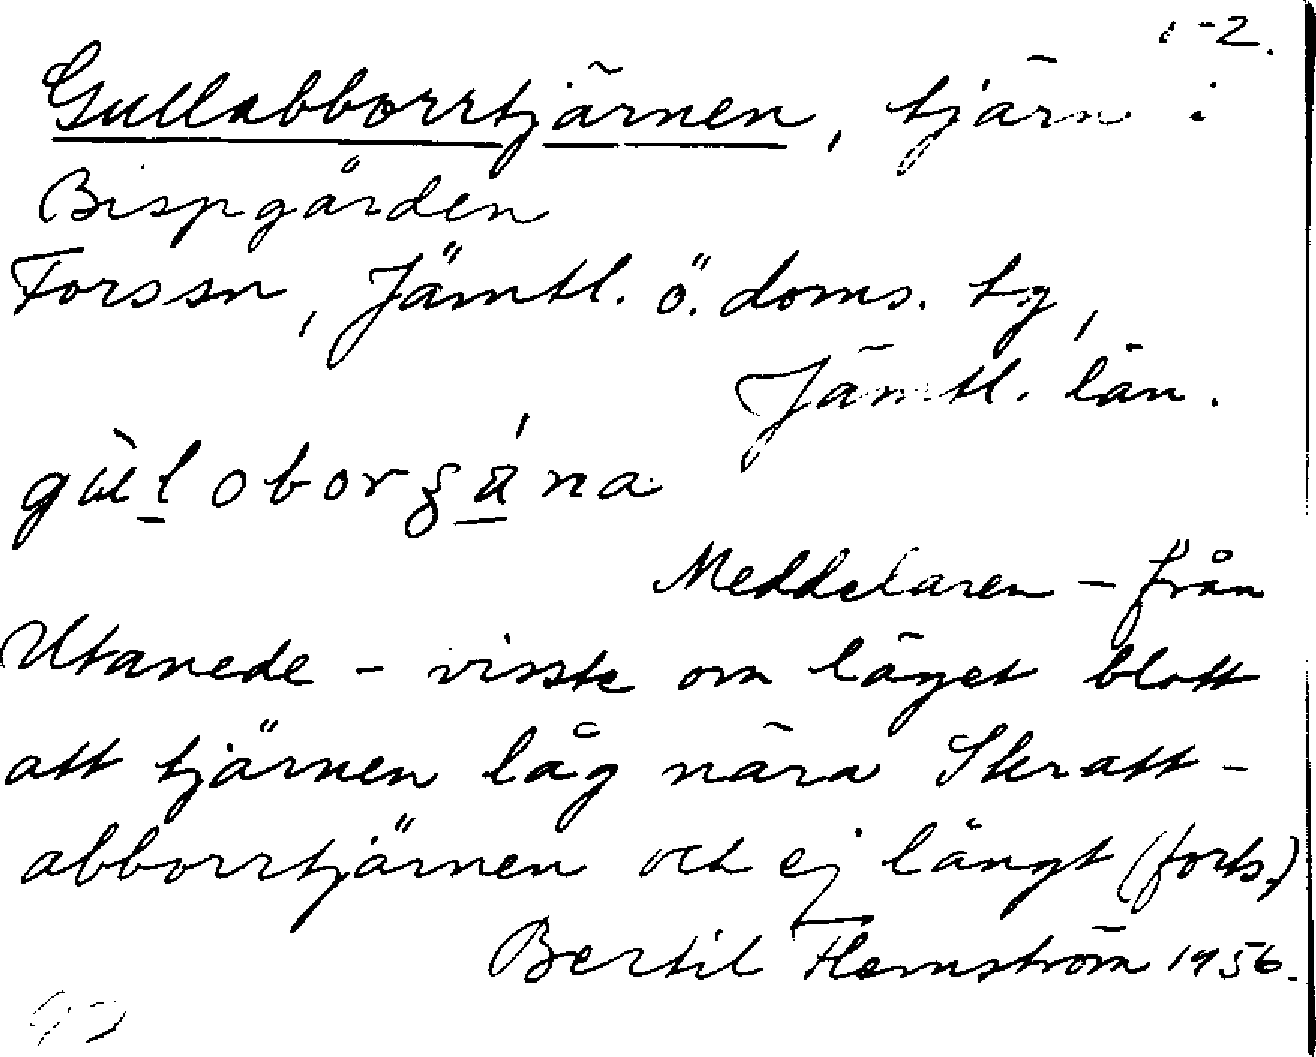 1-2.
Gullabborrtjärnen, tjärn i
Bispgården
Forssn, Jämtl. ö. doms. tg,
Jämtl. län.
gùloborʂá̱na
Meddelaren - från
Utanede - visste om läget blott
att tjärnen låg nära Skratt-
abborrtjärnen och ej långt (forts.)
Bertil Flemström 1956.